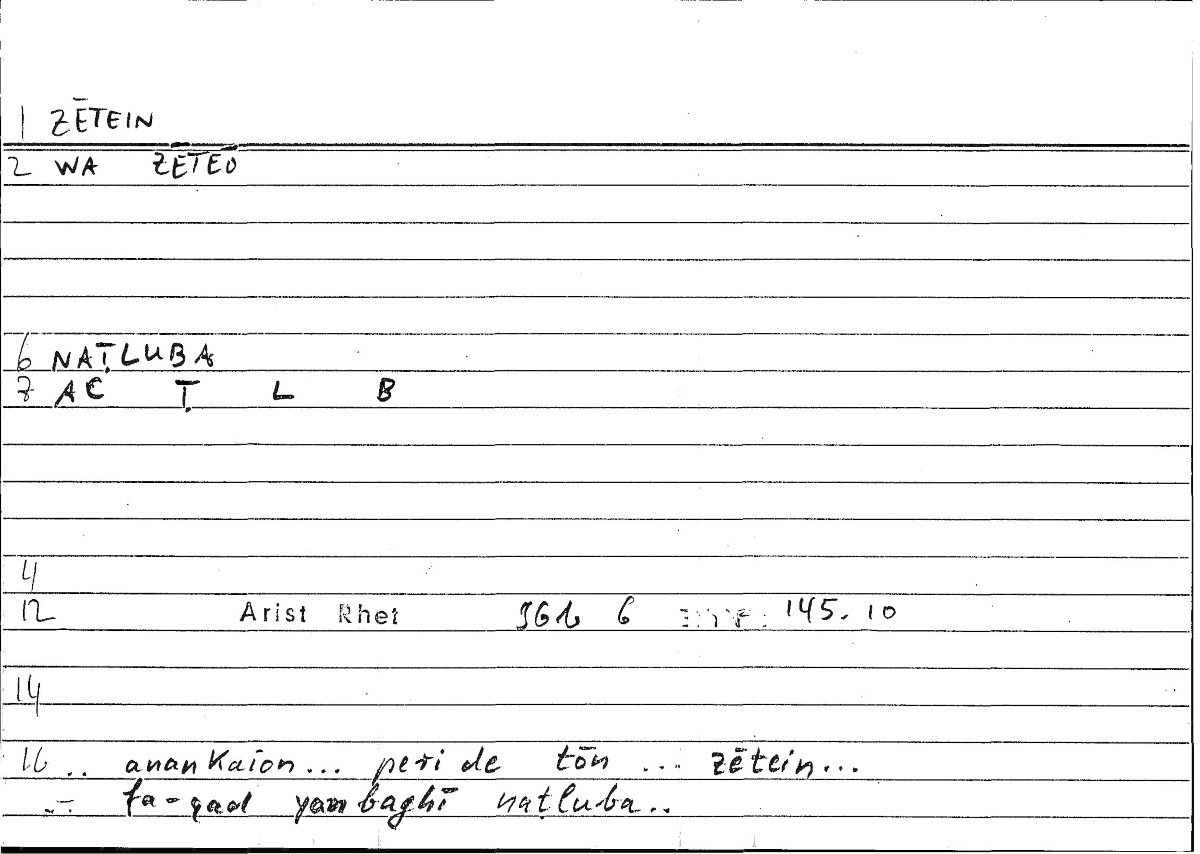 1 ZĒTEIN
2 WA ZĒTEŌ
6 NAṬLUBA
7 AC Ṭ L B
4
12 Arist Rhet 6 145.10
14
16 .. anankaion... peri de tōn ... zētein...
... fa-qad yanbaghī naṭluba..